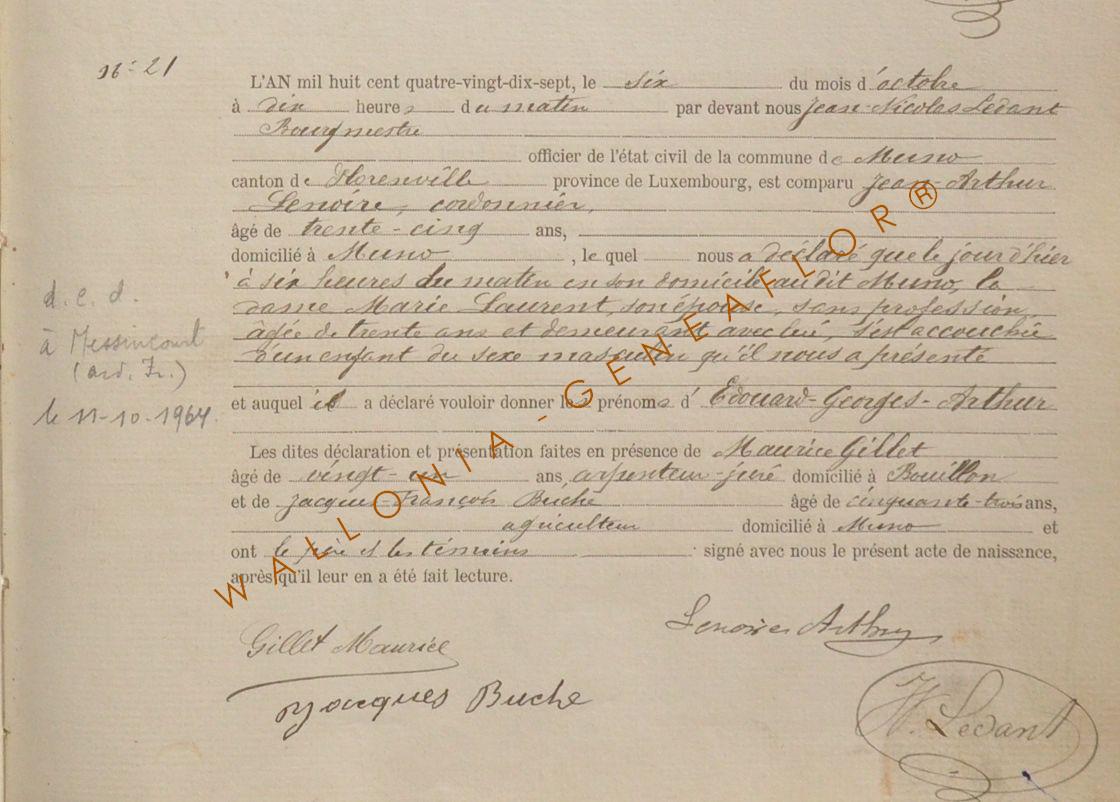 N° 21
L'AN mil huit cent quatre-vingt-dix-sept, le six du mois d'octobre
à dix heures du matin par devant nous Jean-Nicolas Ledant
Bourgmestre
officier de l'état civil de la commune de Muno
canton de Florenville province de Luxembourg, est comparu Jean-Arthur
Lenoire, cordonnier,
âgé de trente-cinq ans,
domicilié à Muno, le quel nous a déclaré que le jour d'hier
à six heures du matin en son domicile audit Muno, la
dame Marie Laurent, son épouse, sans profession,
âgée de trente ans et demeurant avec lui, s'est accouchée
d'un enfant du sexe masculin qu'il nous a présenté
et auquel il a déclaré vouloir donner les prénoms d'Edouard-Georges-Arthur
Les dites déclaration et présentation faites en présence de Maurice Gillet
âgé de vingt-un ans, arpenteur-juré domicilié à Bouillon
et de Jacques-François Buche âgé de cinquante-trois ans,
agriculteur domicilié à Muno et
ont le père et les témoins signé avec nous le présent acte de naissance,
après qu'il leur en a été fait lecture.
d. c. d.
à Messincourt
(ard. Fr.)
le 11-10-1964.
Lenoire Arthur
Gillet Maurice
Jacques Buche
Ledant
WALLONIA-GENEAFLOR®